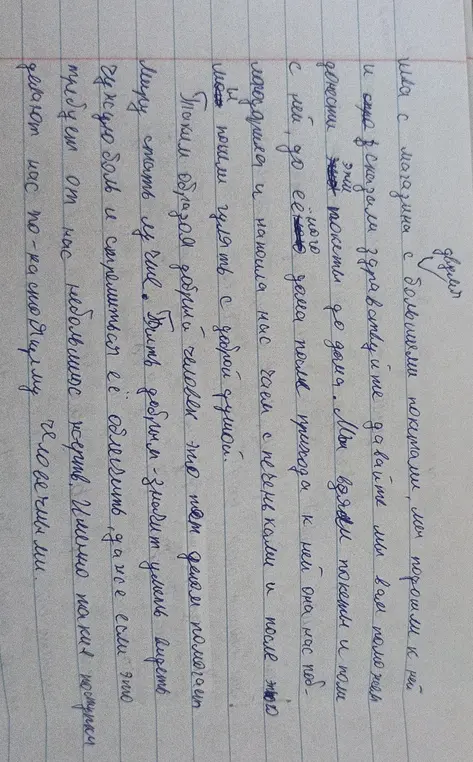 двумя
шла с магазина с большими покетами, мы подошли к ней
и сказали здравствуйте давайте мы вам поможем
донести эти покеты до дома. Мы взяли покеты и пошли
с ней, до её ного дома после прихода к ней она нас поб-
логодрила и напоила нас чаем с печеньками и после этого
мы пошли гулять с доброй душой.
Таким образом добрый человек это тот делом помогает
миру стать лучше. Быть добрым - значит уметь видеть
чужую боль и стремиться её облегчить, даже если это
требует от нас небольших жертв. Именно такие поступки
делают нас по-настоящему человечными.